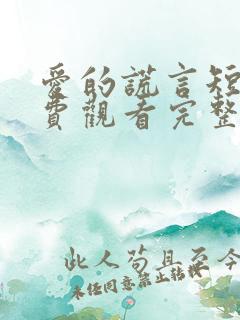 愛的謊言短
費觀看完整
此人苟且至今
未经同意禁止转载